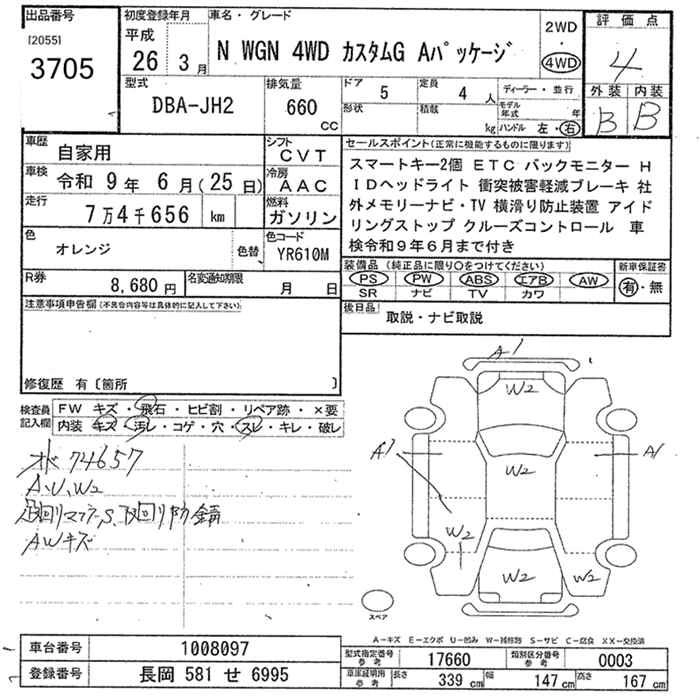 出品番号
[2055]
3705
初度登録年月
平成
26 3月
車名・グレード
N WGN 4WD カスタムG Aパッケージ
2WD
・
4WD
評価点
4
外装 内装
B B
型式
DBA-JH2
排気量
660
CC
ドア
5
形状
定員
4 人
積載
kg
ディーラー・並行
モデル年式 年
ハンドル 左・右
車歴
自家用
シフト
CVT
車検
令和 9年 6月(25日)
冷房
AAC
走行
7万4千656 km
燃料
ガソリン
色
オレンジ
色替
色コード
YR610M
R券
8,680円
名変通知期限
月 日
セールスポイント(正常に機能するものに限ります)
スマートキー2個 ETC バックモニター H
IDヘッドライト 衝突被害軽減ブレーキ 社
外メモリーナビ・TV 横滑り防止装置 アイド
リングストップ クルーズコントロール 車
検令和9年6月まで付き
装備品(純正品に限り○をつけてください)
PS PW ABS エアB AW
SR ナビ TV カワ
新車保証書
有・無
後日品
取説・ナビ取説
注意事項申告欄(不具合内容等は具体的に記入して下さい)
修復歴 有〔箇所 〕
検査員記入欄
FW キズ・飛石・ヒビ割・リペア跡・×要
内装 キズ・汚レ・コゲ・穴・スレ・キレ・破レ
74657
A、U、W2
AWキズ
A1
W2
A1
W2
A1
W2
W2
W2
スペア
A-キズ E-エクボ U-凹み W-補修跡 S-サビ C-腐食 XX-交換済
車台番号
1008097
登録番号
長岡 581 せ 6995
型式指定番号
参考
17660
類別区分番号
参考
0003
車庫証明用
参考
長さ
339 cm
幅
147 cm
高さ
167 cm